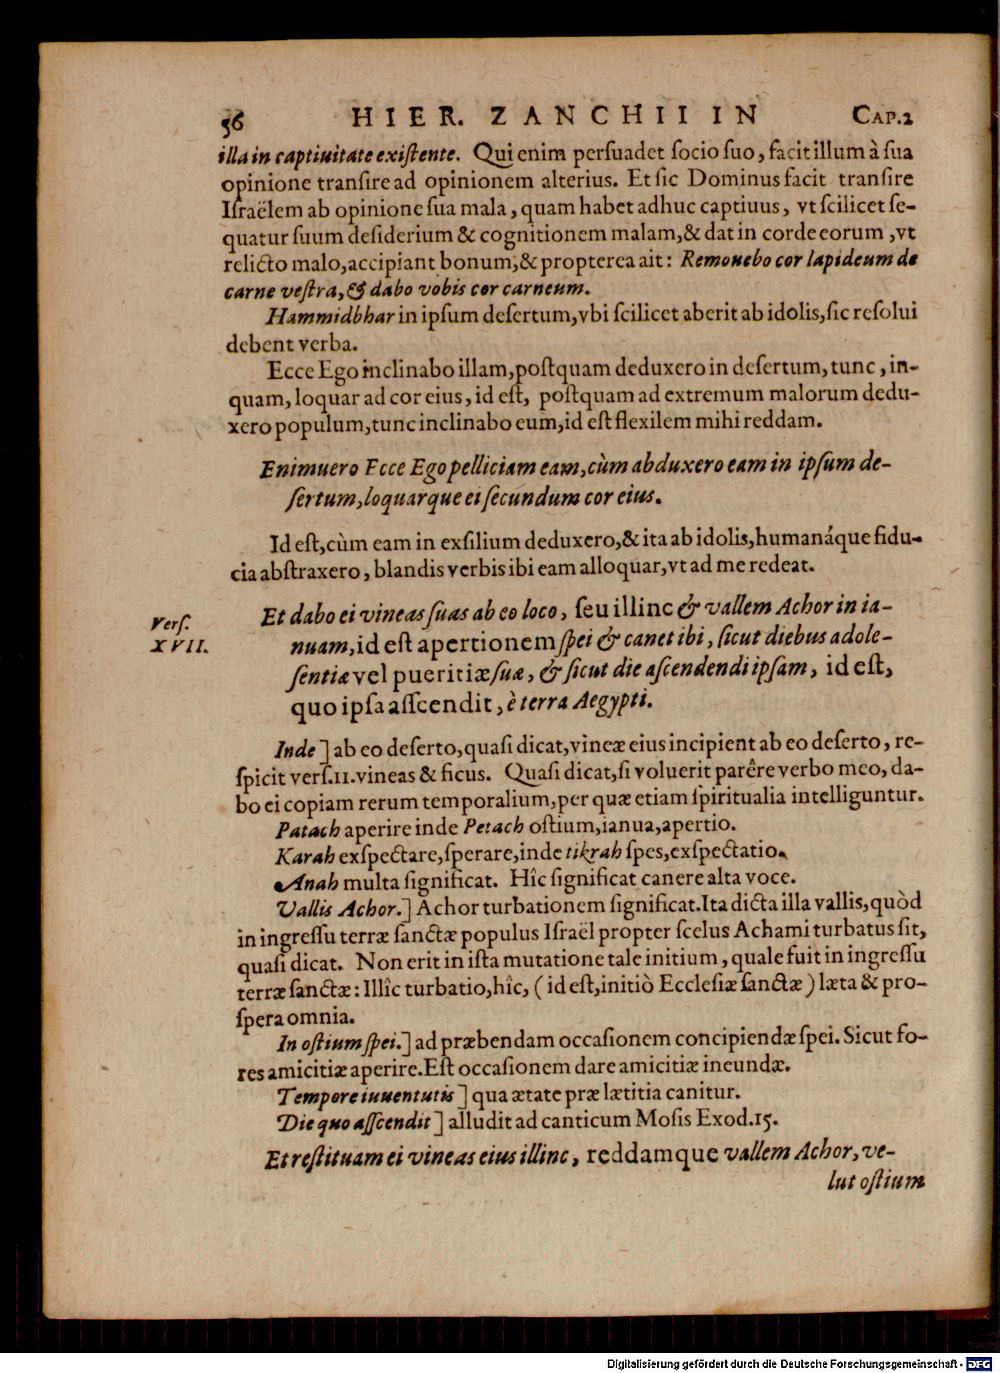 56 HIER. ZANCHII IN CAP.2
illa in captiuitate exiſtente. Qui enim perſuadet ſocio ſuo, facit illum à ſua
opinione tranſire ad opinionem alterius. Et ſic Dominus facit tranſire
Iſraëlem ab opinione ſua mala, quam habet adhuc captiuus, vt ſcilicet ſe-
quatur ſuum deſiderium & cognitionem malam, & dat in corde eorum, vt
relicto malo, accipiant bonum, & propterea ait: Remouebo cor lapideum de
carne veſtra, & dabo vobis cor carneum.
Hammidbhar in ipſum deſertum, vbi ſcilicet aberit ab idolis, ſic reſolui
debent verba.
Ecce Ego inclinabo illam, poſtquam deduxero in deſertum, tunc, in-
quam, loquar ad cor eius, id eſt, poſtquam ad extremum malorum dedu-
xero populum, tunc inclinabo eum, id eſt flexilem mihi reddam.
Enimuero Ecce Ego pelliciam eam, cùm abduxero eam in ipſum de-
ſertum, loquarque ei ſecundum cor eius.
Id eſt, cùm eam in exſilium deduxero, & ita ab idolis, humanáque fidu-
cia abſtraxero, blandis verbis ibi eam alloquar, vt ad me redeat.
Verſ.
XVII.
Et dabo ei vineas ſuas ab eo loco, ſeu illinc & vallem Achor in ia-
nuam, id eſt apertionem ſpei & canet ibi, ſicut diebus adole-
ſentiæ vel pueritiæ ſuæ, & ſicut die aſcendendi ipſam, id eſt,
quo ipſa aſſcendit, è terra Aegypti.
Inde] ab eo deſerto, quaſi dicat, vineæ eius incipient ab eo deſerto, re-
ſpicit verſ.11. vineas & ficus. Quaſi dicat, ſi voluerit parêre verbo meo, da-
bo ei copiam rerum temporalium, per quæ etiam ſpiritualia intelliguntur.
Patach aperire inde Petach oſtium, ianua, apertio.
Karah exſpectare, ſperare, inde tikrah ſpes, exſpectatio.
Anah multa ſignificat. Hîc ſignificat canere alta voce.
Vallis Achor.] Achor turbationem ſignificat. Ita dicta illa vallis, quòd
in ingreſſu terræ ſanctæ populus Iſraël propter ſcelus Achami turbatus ſit,
quaſi dicat. Non erit in iſta mutatione tale initium, quale fuit in ingreſſu
terræ ſanctæ: Illîc turbatio, hîc, (id eſt, initiò Eccleſiæ ſanctæ) læta & pro-
ſpera omnia.
In oſtium ſpei.] ad præbendam occaſionem concipiendæ ſpei. Sicut fo-
res amicitiæ aperire. Eſt occaſionem dare amicitiæ ineundæ.
Tempore iuuentutis] qua ætate præ lætitia canitur.
Die quo aſſcendit] alludit ad canticum Moſis Exod.15.
Et reſtituam ei vineas eius illinc, reddamque vallem Achor, ve-
lut oſtium
Digitalisierung gefördert durch die Deutsche Forschungsgemeinschaft - DFG